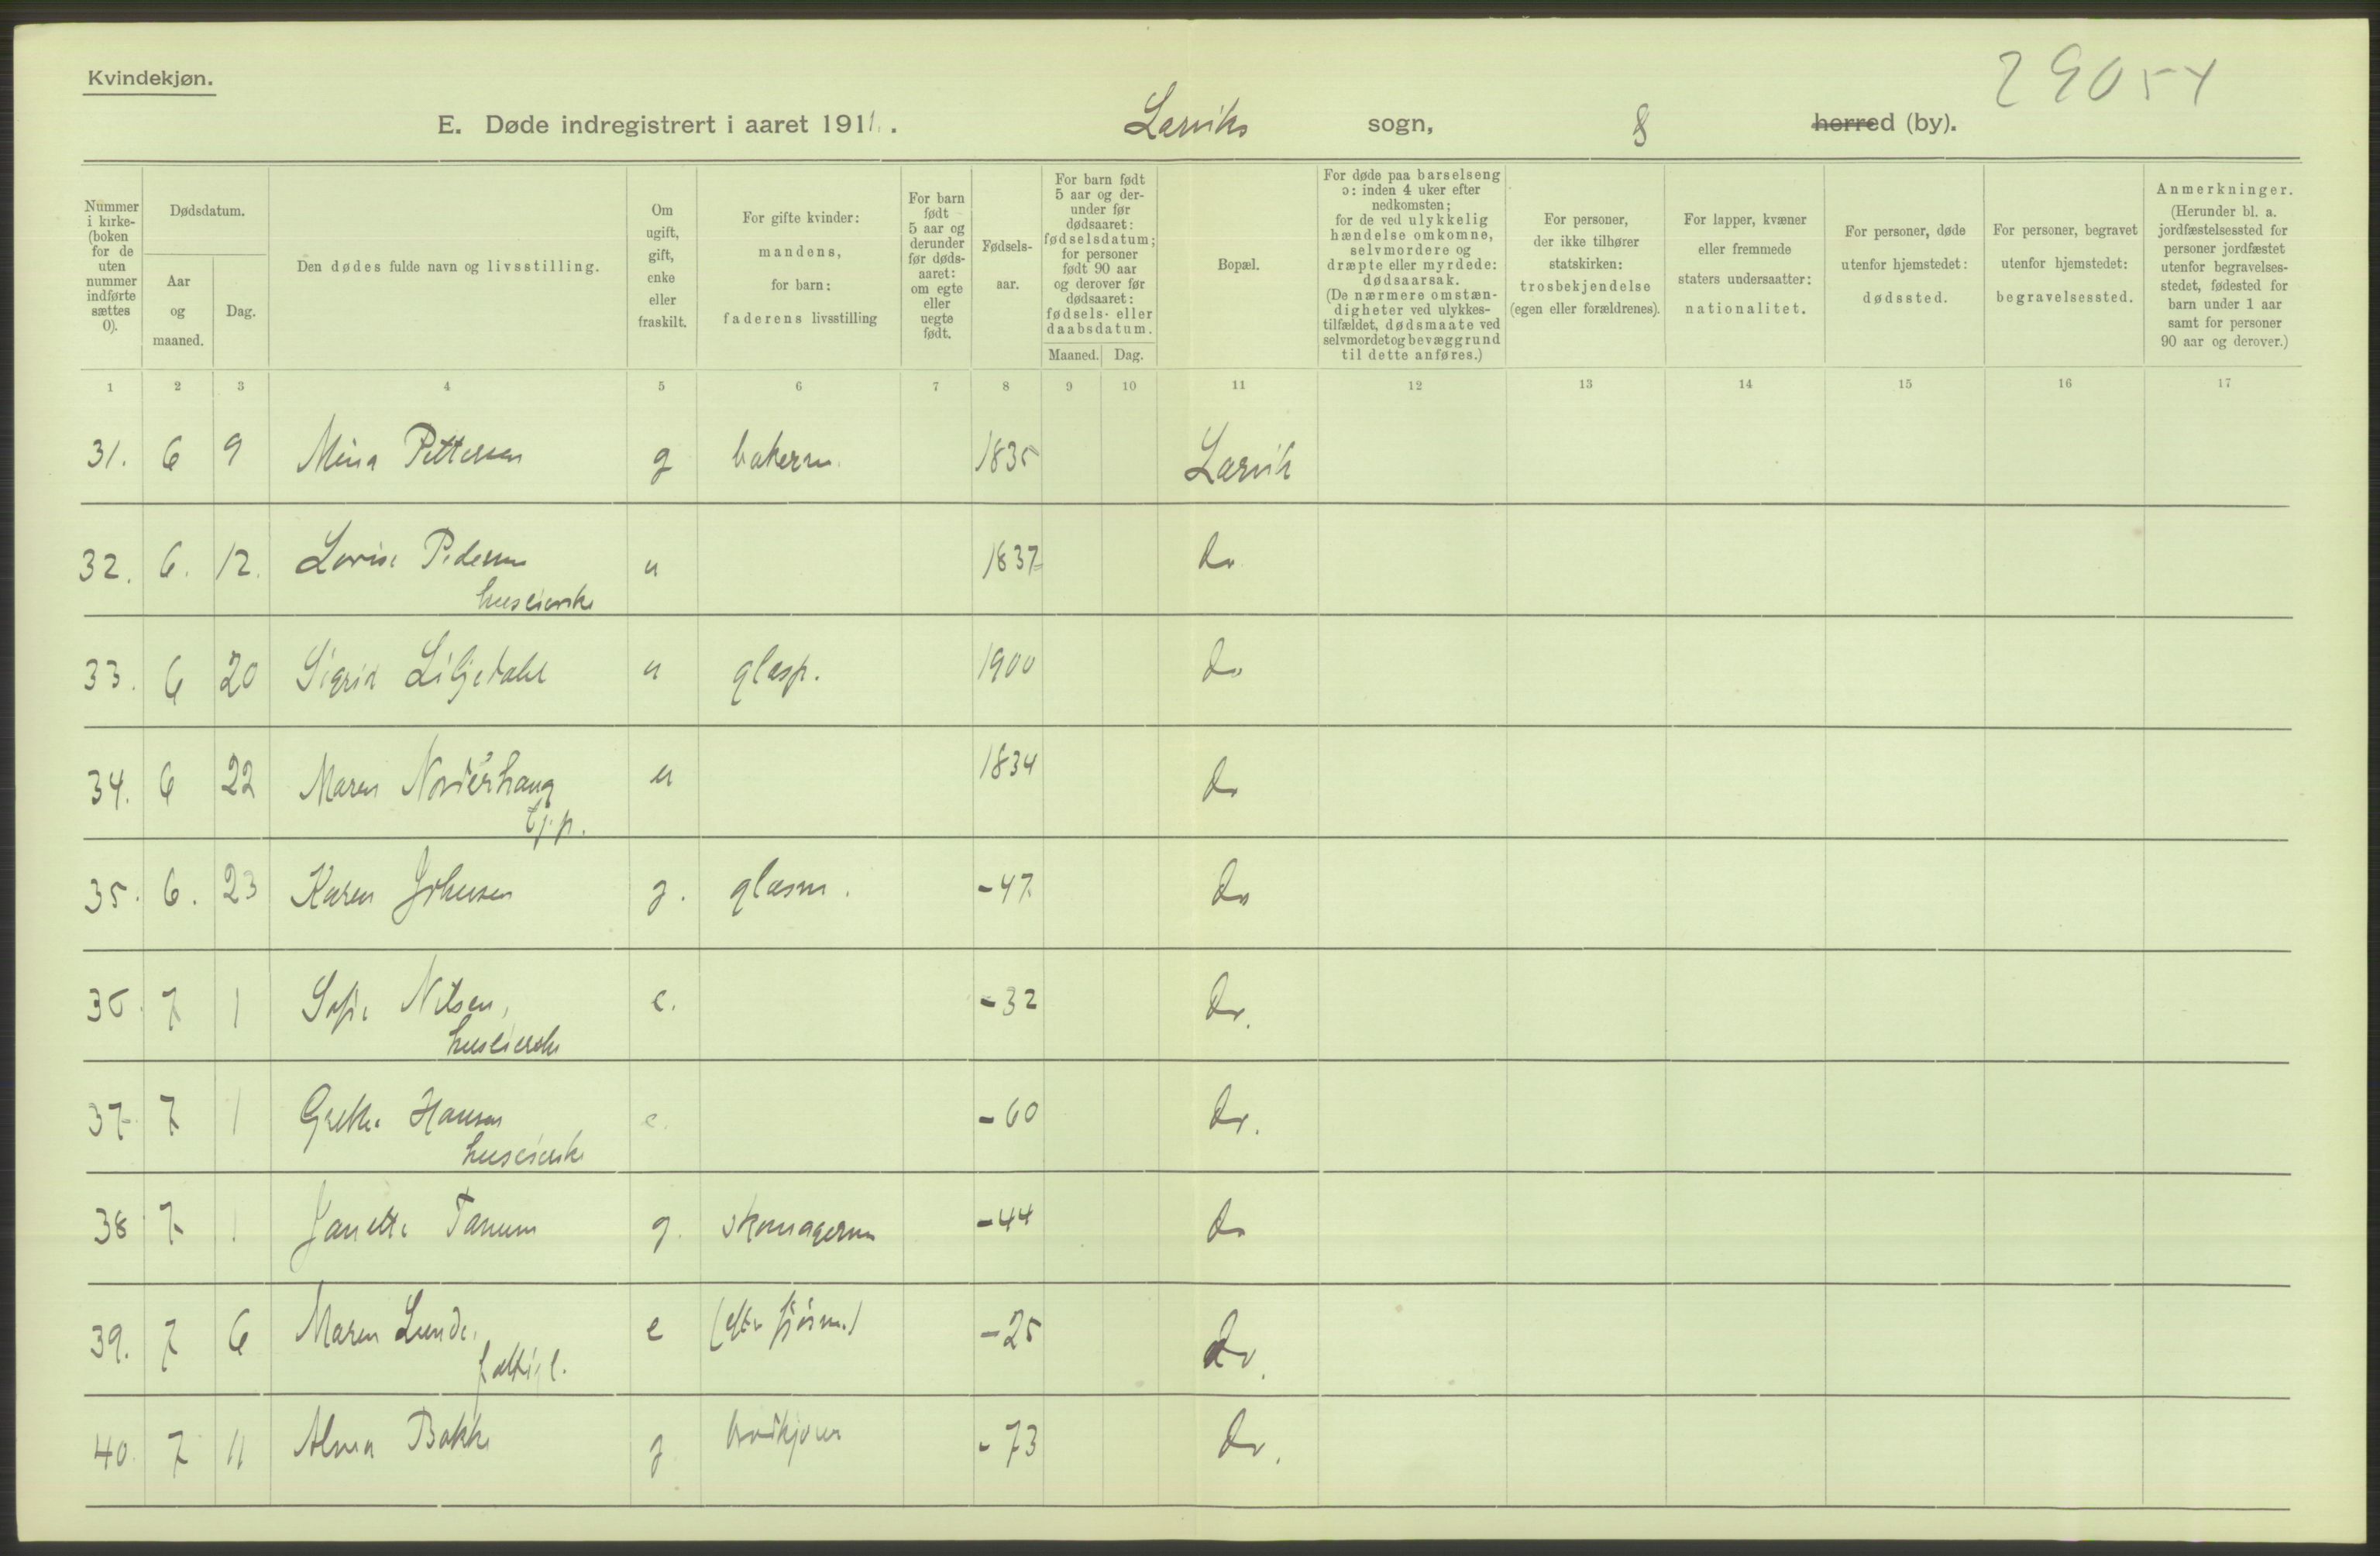 Kvindekjøn.
29054
E. Døde indregistrert i aaret 1911. Larviks sogn, 8 herred (by).
Nummer i kirke-(boken for de uten nummer indførte sættes 0).
Dødsdatum.
Aar og maaned.
Dag.
Den dødes fulde navn og livsstilling.
Om ugift, gift, enke eller fraskilt.
For gifte kvinder: mandens, for barn: faderens livsstilling
For barn født 5 aar og derunder før døds-aaret: om egte eller uegte født.
Fødsels-aar.
For barn født 5 aar og der-under før dødsaaret: fødselsdatum; for personer født 90 aar og derover før dødsaaret: fødsels- eller daabsdatum.
Maaned. Dag.
Bopæl.
For døde paa barselseng ɔ: inden 4 uker efter nedkomsten; for de ved ulykkelig hændelse omkomne, selvmordere og dræpte eller myrdede: dødsaarsak. (De nærmere omstæn-digheter ved ulykkes-tilfældet, dødsmaate ved selvmordet og bevæggrund til dette anføres.)
For personer, der ikke tilhører statskirken: trosbekjendelse (egen eller forældrenes).
For lapper, kvæner eller fremmede staters undersaatter: nationalitet.
For personer, døde utenfor hjemstedet: dødssted.
For personer, begravet utenfor hjemstedet: begravelsessted.
Anmerkninger. (Herunder bl. a. jordfæstelsessted for personer jordfæstet utenfor begravelses-stedet, fødested for barn under 1 aar samt for personer 90 aar og derover.)
1 2 3 4 5 6 7 8 9 10 11 12 13 14 15 16 17
31. 6 9 Mina Pettersen g bakerm. 1835 Larvik
32. 6. 12. Lovise Pedersen u 1837 do
huseierske
33. 6 20 Sigrid Liljedahl u glasp. 1900 do
34. 6 22 Maren Norderhaug u 1834 do
tj.p.
35. 6. 23 Karen Johnsen g. glasm. -47 do
36. 7 1 Sofie Nilsen, e. -32 do.
huseierske
37. 7 1 Grethe Hansen e. -60 do.
huseierske
38 7 1 Janette Tanum g. skomagerm -44 do
39. 7 6 Maren Lunde, e (efter sjøm.) -25 do.
fattigl.
40. 7 11 Alma Bakke g -73 do.